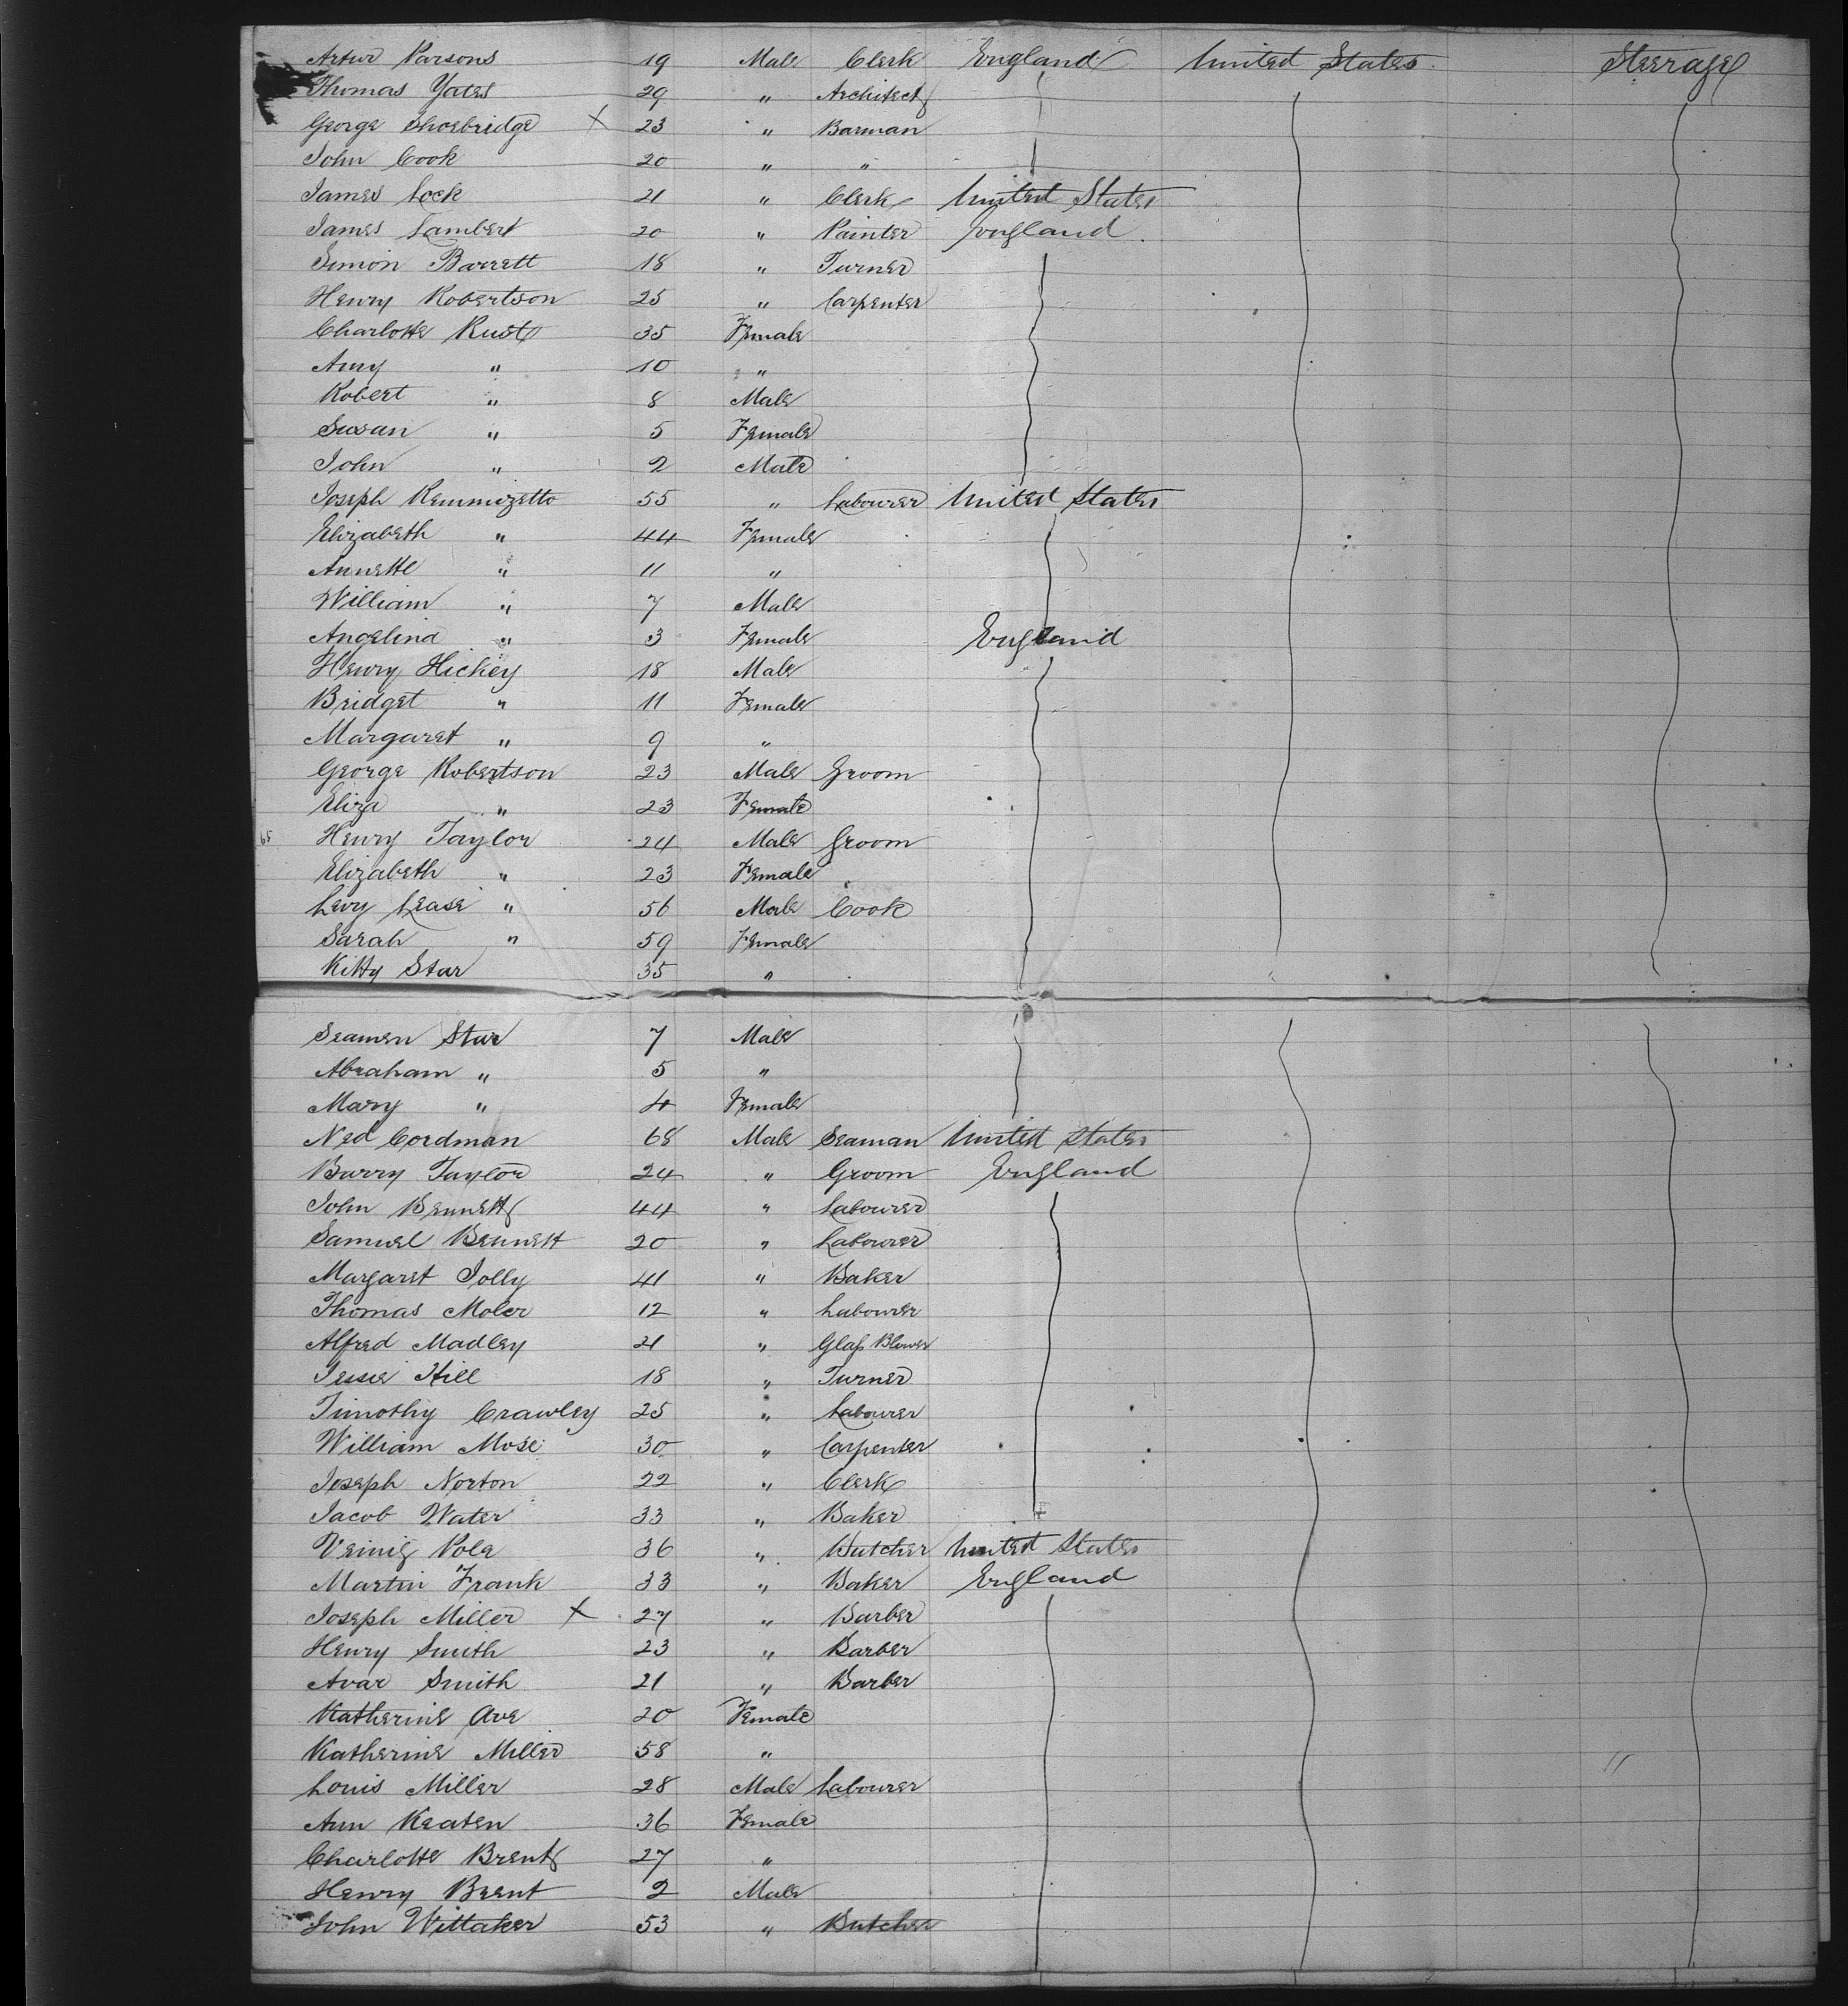 Artur Parsons 19 Male Clerk England United States Steerage
Thomas Yates 29 " Architect
George Shoebridge X 23 " Barman
John Cook 20 " "
James Lock 21 " Clerk United States
James Lambert 20 " Painter England
Simon Barrett 18 " Turner
Henry Robertson 25 " Carpenter
Charlotte Rust 35 Female
Amy " 10 "
Robert " 8 Male
Susan " 5 Female
John " 2 Male
Joseph Remmizetto 55 " Labourer United States
Elizabeth " 44 Female
Annette " 11 "
William " 7 Male
Angelina " 3 Female England
Henry Hickey 18 Male
Bridget " 11 Female
Margaret " 9 "
George Robertson 23 Male Groom
Eliza " 23 Female
Henry Taylor 24 Male Groom
Elizabeth " 23 Female
Levy Lease " 56 Male Cook
Sarah " 59 Female
Kitty Star 35 "
Seamen Star 7 Male
Abraham " 5 "
Mary " 4 Female
Ned Cordman 68 Male Seaman United States
Barry Taylor 24 " Groom England
John Bennett 44 " Labourer
Samuel Bennett 20 " Labourer
Margaret Jolly 41 " Baker
Thomas Moler 12 " Labourer
Alfred Madley 21 " Glass Blower
Jessie Hill 18 " Turner
Timothy Crawley 25 " Labourer
William Mose 30 " Carpenter
Joseph Norton 22 " Clerk
Jacob Water 33 " Baker
Pole 36 " Butcher United States
Martin Frank 33 " Baker England
Joseph Miller X 27 " Barber
Henry Smith 23 " Barber
Avar Smith 21 " Barber
Katherine Ave 20 Female
Katherine Miller 58 "
Louis Miller 28 Male Labourer
Ann Keaten 36 Female
Charlotte Brent 27 "
Henry Brent 2 Male
John Wittaker 53 " Butcher